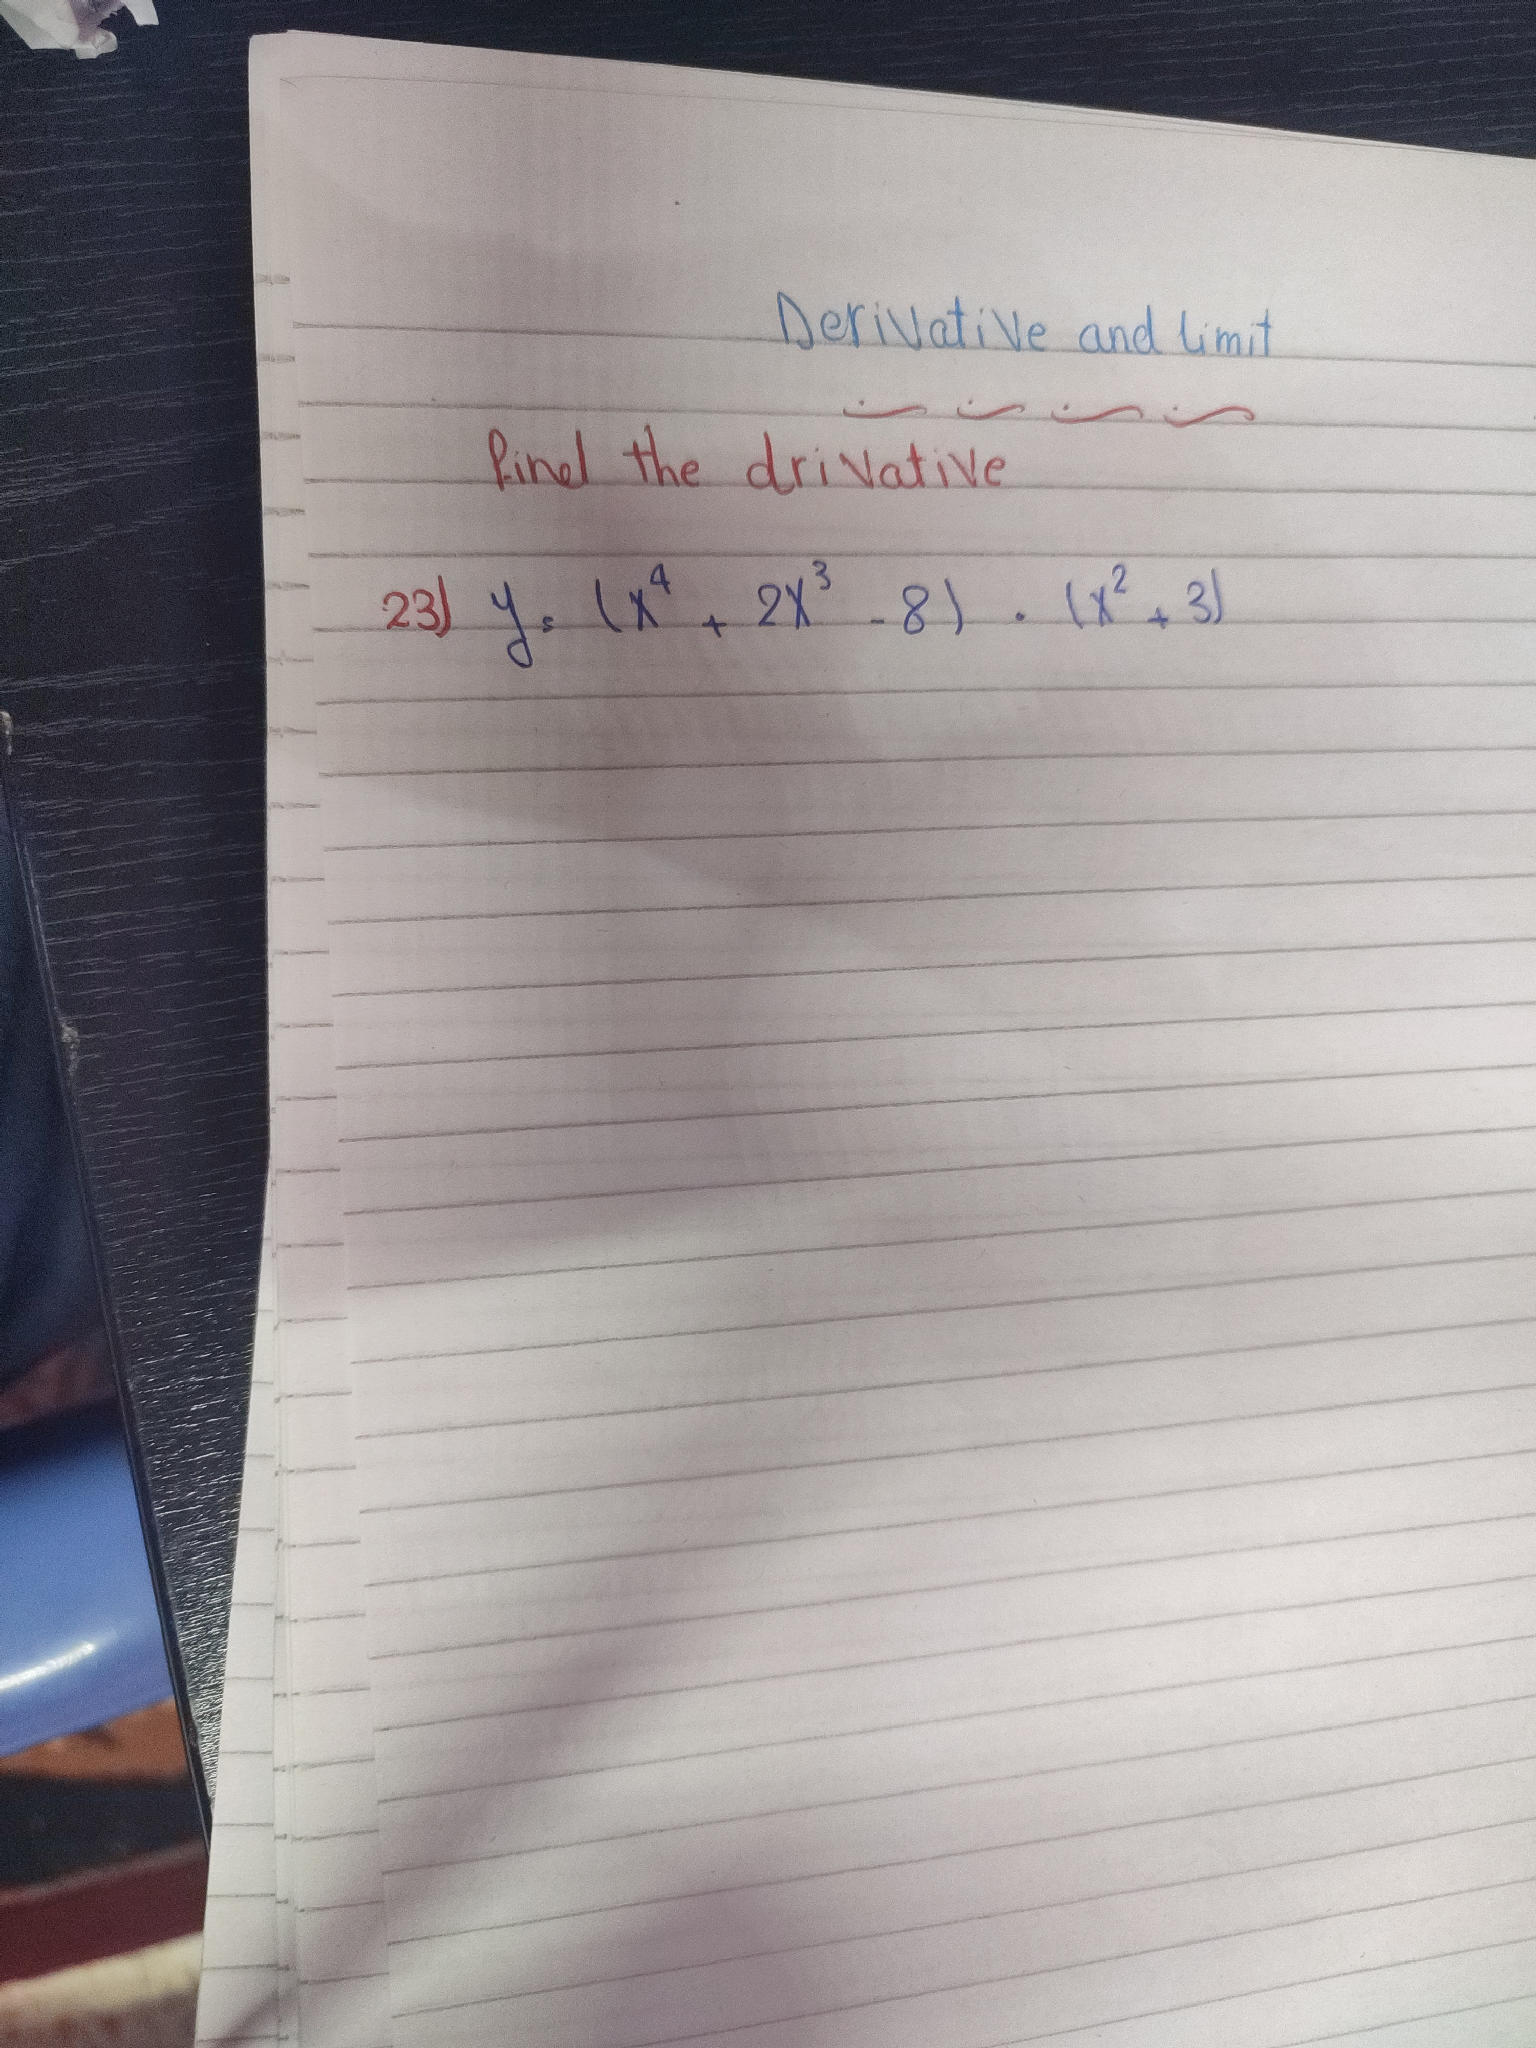 Derivative and limit
find the drivative
23) y = (x⁴ + 2x³ - 8) . (x² + 3)